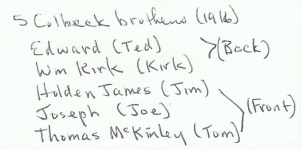 5 Colbeck brothers (1916)
Edward (Ted)
Wm Kirk (Kirk) (Back)
Holden James (Jim)
Joseph (Joe) (Front)
Thomas McKinley (Tom)